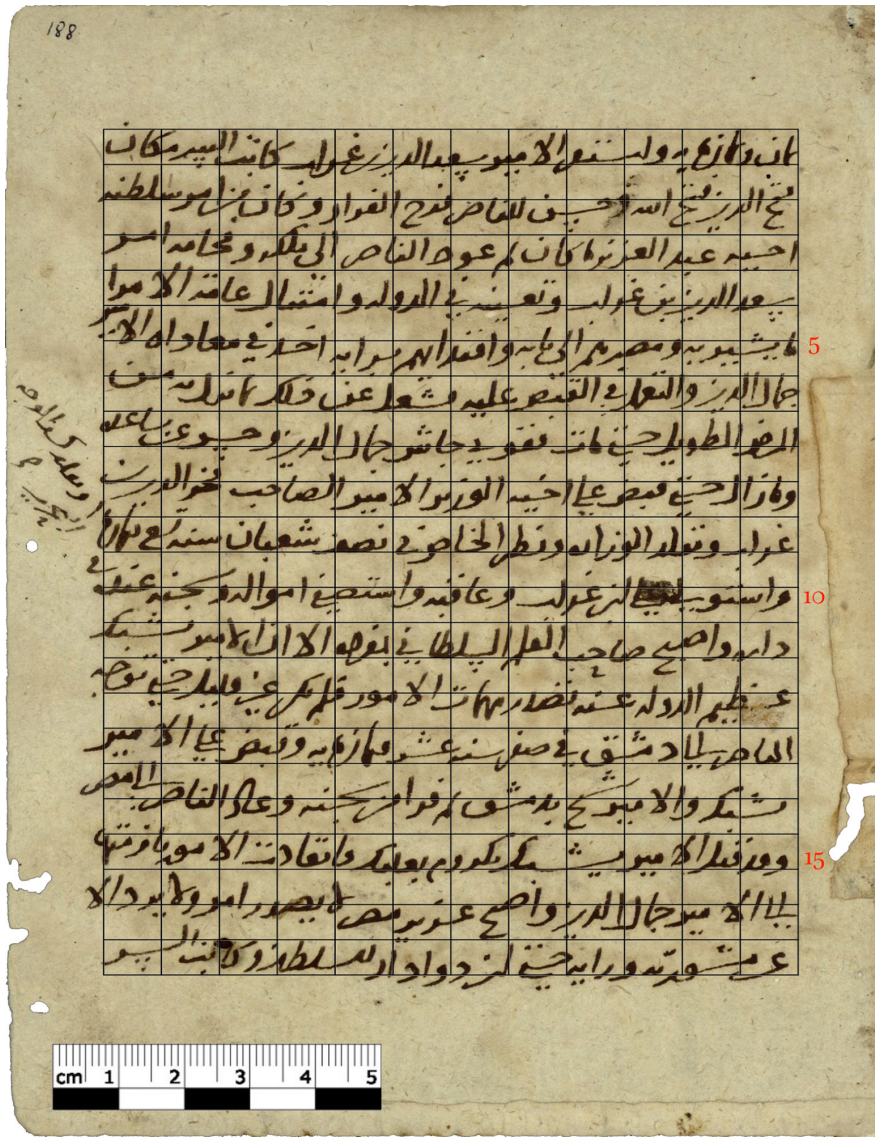 188
ثمان وثمانمايه واستقر الامير سعد الدين بن غراب كاتب السر مكان
فتح الدين فتح الله وحسن للناصر فرج الفرار وكان من امر سلطنه
اخيه عبد العزيز ما كان ثم عود الناصر الى ملكه وفخامه امر
سعد الدين بن غراب وتعينه في الدوله وامتثال عامة الامرا
ما يشير به ومصيرهم الى بابه واقتدائهم برايه اخذ في معاداه الامير
جمال الدين والتعمل في القبض عليه فشغل عن ذلك بما نزل به من
المرض الطويل حتى مات فقوي جاش جمال الدين وحسر عن ساعده
وما زال حتى قبض على اخيه الوزير الامير الصاحب فخر الدين بن
غراب وتقلد الوزاره ونظر الخاص في نصف شعبان سنه تسع وثمانمايه
واستوب ابن غراب وعاقبه واستصفى امواله وسجنه عنده في
داره واصبح صاحب القلم السلطاني بمفرده الا ان الامير يشبك
عظيم الدوله عنه تصدر مهمات الامور فلم يكن غير قليل حتى توجه
الناصر الى دمشق في صفر سنه عشر وثمانمايه وقبض على الامير
يشبك والامير شيخ بدمشق ثم فرا من سجنه وعاد الناصر الى مصر
وقد قتل الامير يشبك بكروم بعلبك فانقادت الامور بازمتها
الى الامير جمال الدين واصبح عزيز مصر لا يصدر امر ولا يرد الا
عن مشورته ورايه حتى ان دوادار السلطان وكاتب السر
5
10
15
cm 1 2 3 4 5